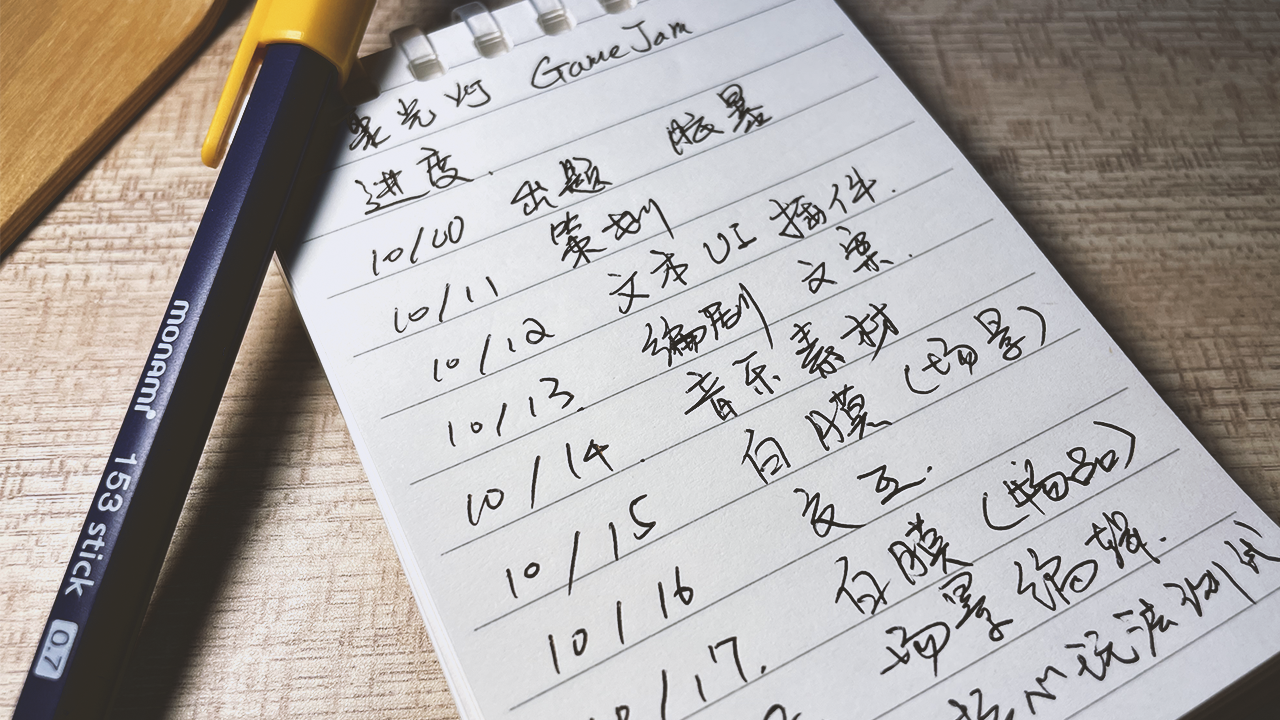 星光灯 GameJam
进度.
10/10 出题 脑暴
10/11 策划
10/12 文本UI插件.
10/13. 编剧 文案.
10/14. 音乐素材
10/15 白膜(场景)
10/16 交互.
10/17. 白膜(物品)
场景编辑.
核心玩法测试
monami 153 stick 0.7